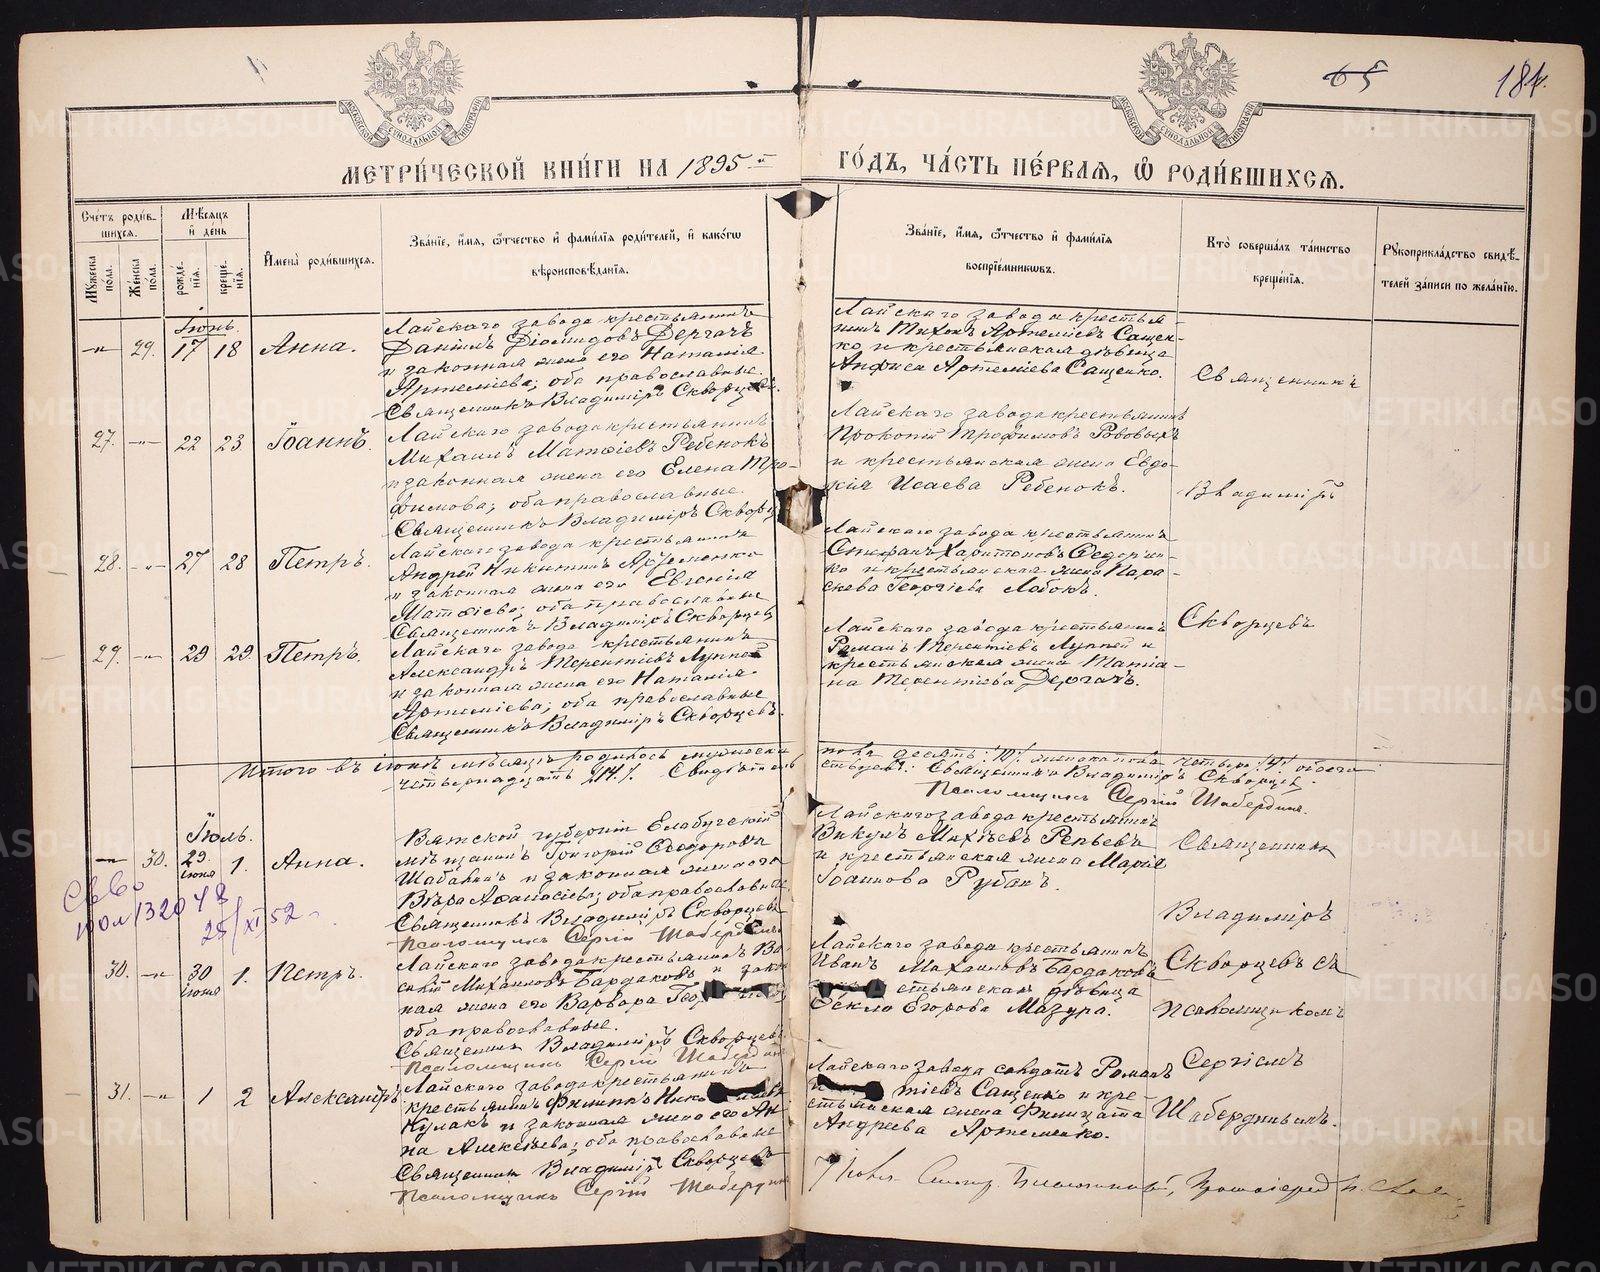 65
184.
МЕТРИ́ЧЕСКОЙ КНИ́ГИ НА 1895-й ГО́ДЪ, ЧА́СТЬ ПЕ́РВАѦ, Ѡ РОДИ́ВШИХСѦ.
МОСКОВСКОЙ СѴНОДАЛЬНОЙ ТИПОГРАФІИ
МОСКОВСКОЙ СѴНОДАЛЬНОЙ ТИПОГРАФІИ
Сче́тъ роди́в-
шихсѧ.
Мѣ́сѧцъ
и҆ де́нь
Мꙋ́жеска по́ла.
Же́нска по́ла.
рожде́-
нїѧ.
креще́-
нїѧ.
И҆мена̀ роди́вшихсѧ.
Зва́нїе, и҆́мѧ, ѻ҆́тчество и҆ фами́лїѧ роди́телей, и҆ како́гѡ
вѣроисповѣ́данїѧ.
Зва́нїе, и҆́мѧ, ѻ҆́тчество и҆ фами́лїѧ
воспрїе́мниковъ.
Кто̀ соверша́лъ та́инство
креще́нїѧ.
Рꙋкоприкла́дство свидѣ́-
телей за́писи по жела́нїю.
Іюнь.
-"- 29. 17 18 Анна.
Лайскаго завода крестьянинъ
Даніилъ Діомидовъ Дергачъ
и законная жена его Наталія
Артеміева; оба православные.
Священникъ Владиміръ Скворцевъ.
Лайскаго завода крестья-
нинъ Тихонъ Артеміевъ Сащен-
ко и крестьянская дѣвица
Анфиса Артеміева Сащенко.
Священникъ
27. -"- 22 23 Іоаннъ.
Лайскаго завода крестьянинъ
Михаилъ Матѳіевъ Ребенокъ
и законная жена его Елена Тро-
фимова; оба православные.
Священникъ Владиміръ Скворц
Лайскаго завода крестьянинъ
Прокопій Трофимовъ
и крестьянская жена Евдо-
кія Исаева Ребенокъ.
Владиміръ
28. -"- 27 28 Петръ.
Лайскаго завода крестьянинъ
Андрей Никитинъ Артеменко
и законная жена его Евгенія
Матѳіева; оба православные
Священникъ Владиміръ Скворцев
Лайскаго завода крестьянинъ
Стефанъ Харитоновъ Ѳедорен-
ко и крестьянская жена Пара-
скева Георгіева Лобокъ.
Скворцевъ
29. -"- 29 29. Петръ.
Лайскаго завода крестьянинъ
Александръ Терентіевъ Луппей
и законная жена его Наталія
Артеміева; оба православные
Священникъ Владиміръ Скворцевъ.
Лайскаго завода крестьянинъ
Романъ Терентіевъ Луппей и
крестьянская жена Татіа-
на Терентіева Дергачъ.
Итого въ іюнѣ мѣсяцѣ родилось мужеска пола десять /10/ женска пола четыре /4/ обоего
четырнадцать /14/. Свидѣтельствуемъ: Священникъ Владиміръ Скворцев.
Псаломщикъ Сергій Шабердинъ.
Іюль.
-"- 30. 29. іюня 1. Анна.
Вятской губерніи Елабугскій
мѣщанинъ Григорій Ѳеодоровъ
Шабалинъ и законная жена его
Вѣра Аѳанасіева; оба православные.
Священникъ Владиміръ Скворцевъ
Псаломщикъ Сергій Шабердинъ
Лайскаго завода крестьянинъ
Викулъ Михѣевъ Репьевъ
и крестьянская жена Марія
Іоаннова Рубанъ.
Священникъ
Св-во
юл 132048
25/XI 52
Владиміръ
30. -"- 30 іюня 1. Петръ.
Лайскаго завода крестьянинъ Ва-
силій Михаиловъ Бардаковъ и закон
ная жена его Варвара
оба православные.
Священникъ Владиміръ Скворцевъ
Псаломщикъ Сергій Шабердин
Лайскаго завода крестьянинъ
Иванъ Михаиловъ Бардаковъ
стьянская дѣвица
Ѳекла Егорова Мазура.
Скворцевъ съ
псаломщикомъ
31. -"- 1 2 Александръ.
Лайскаго завода крестьянинъ
крестьянинъ Филиппъ
Кулакъ и законная жена его Ан
на Алексѣева; оба православные
Священникъ Владиміръ Скворцевъ
Псаломщикъ Сергій Шабердин
Лайскаго завода солдатъ Романъ
тіевъ Сащенко и кре-
стьянская жена Филицата
Андреева Артеменко.
Сергіемъ
Шабердинымъ.
METRIKI.GASO-URAL.RU